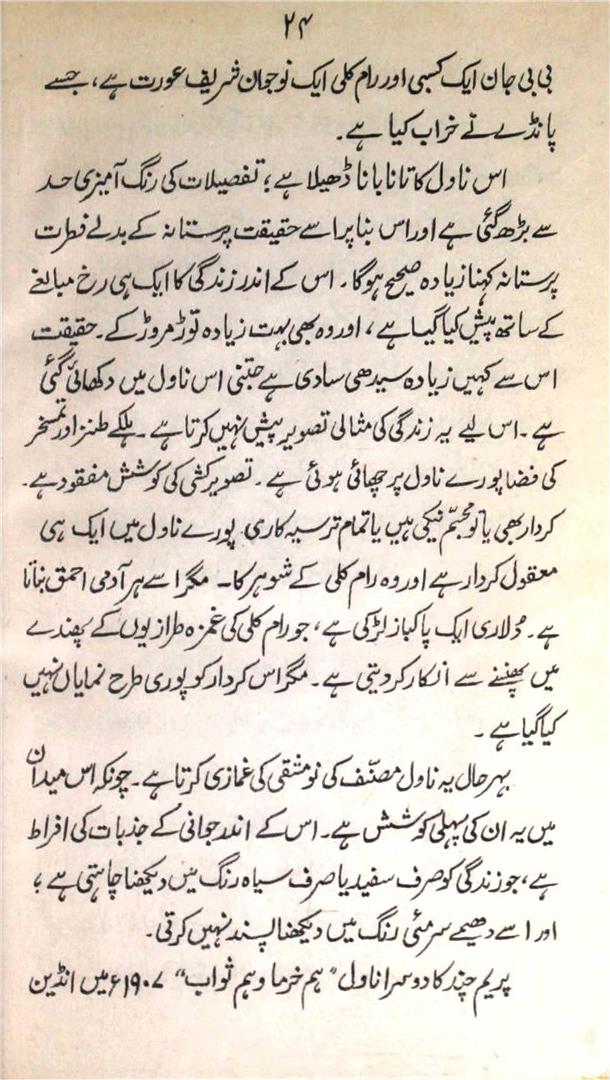 ۲۴
بی بی جان ایک کسبی اور رام کلی ایک نوجوان شریف عورت ہے، جسے
پانڈے نے خراب کیا ہے۔
اس ناول کا تانا بانا ڈھیلا ہے؛ تفصیلات کی رنگ آمیزی حد
سے بڑھ گئی ہے اور اس بنا پر اسے حقیقت پرستانہ کے بدلے فطرت
پرستانہ کہنا زیادہ صحیح ہوگا۔ اس کے اندر زندگی کا ایک ہی رخ مبالغے
کے ساتھ پیش کیا گیا ہے، اور وہ بھی بہت زیادہ توڑ مروڑ کے۔ حقیقت
اس سے کہیں زیادہ سیدھی سادی ہے جتنی اس ناول میں دکھائی گئی
ہے۔ اس لیے یہ زندگی کی مثالی تصویر پیش نہیں کرتا ہے۔ ہلکے طنز اور تمسخر
کی فضا پورے ناول پر چھائی ہوئی ہے۔ تصویر کشی کی کوشش مفقود ہے۔
کردار بھی یا تو مجسّم نیکی ہیں یا تمام تر سیہ کاری پورے ناول میں ایک ہی
معقول کردار ہے اور وہ رام کلی کے شوہر کا۔ مگر اسے ہر آدمی احمق بناتا
ہے۔ دُلاری ایک پاکباز لڑکی ہے، جو رام کلی کی غمزہ طرازیوں کے پھندے
میں پھنسنے سے انکار کر دیتی ہے۔ مگر اس کردار کو پوری طرح نمایاں نہیں
کیا گیا ہے۔
بہر حال یہ ناول مصنّف کی نو مشقی کی غمازی کرتا ہے۔ چونکہ اس میدان
میں یہ ان کی پہلی کوشش ہے۔ اس کے اندر جوانی کے جذبات کی افراط
ہے، جو زندگی کو صرف سفید یا صرف سیاہ رنگ میں دیکھنا چاہتی ہے؛
اور اسے دھیمے سرمئی رنگ میں دیکھنا پسند نہیں کرتی۔
پریم چند کا دوسرا ناول "ہم خرما و ہم ثواب" ۱۹۰۷ء میں انڈین